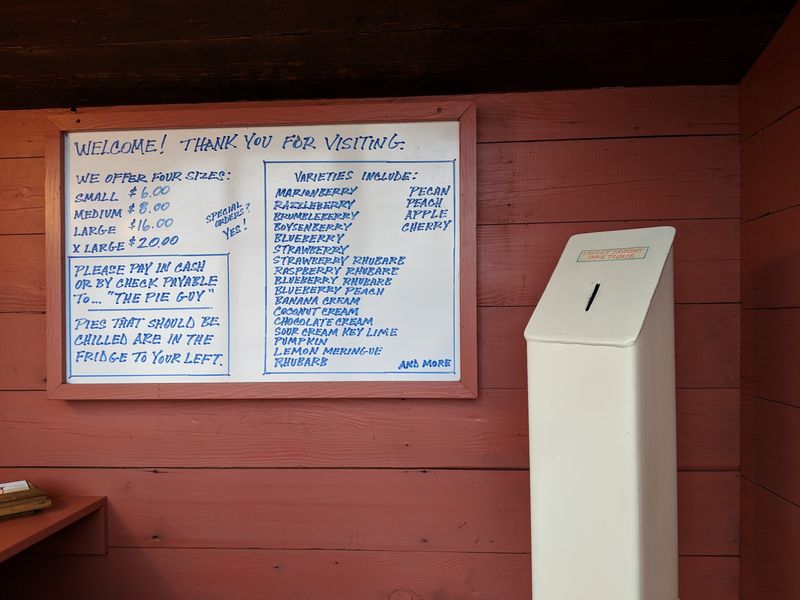 WELCOME! THANK YOU FOR VISITING.
WE OFFER FOUR SIZES:
SMALL $6.00
MEDIUM $8.00
LARGE $16.00
X LARGE $20.00
SPECIAL
ORDERS?
YES!
PLEASE PAY IN CASH
OR BY CHECK PAYABLE
TO... "THE PIE GUY"
PIES THAT SHOULD BE
CHILLED ARE IN THE
FRIDGE TO YOUR LEFT.
VARIETIES INCLUDE:
MARIONBERRY
RAZZLEBERRY
BRUMBLEBERRY
BOYSENBERRY
BLUEBERRY
STRAWBERRY
STRAWBERRY RHUBARB
RASPBERRY RHUBARB
BLUEBERRY RHUBARB
BLUEBERRY PEACH
BANANA CREAM
COCONUT CREAM
CHOCOLATE CREAM
SOUR CREAM KEY LIME
PUMPKIN
LEMON MERINGUE
RHUBARB
PECAN
PEACH
APPLE
CHERRY
AND MORE
PAYMENT